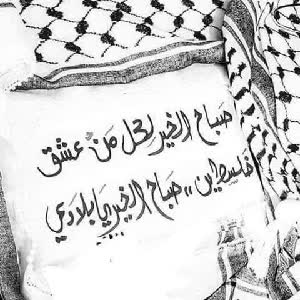 صباح الخير لكل من عشق
فلسطين ,, صباح الخير يا بلادي